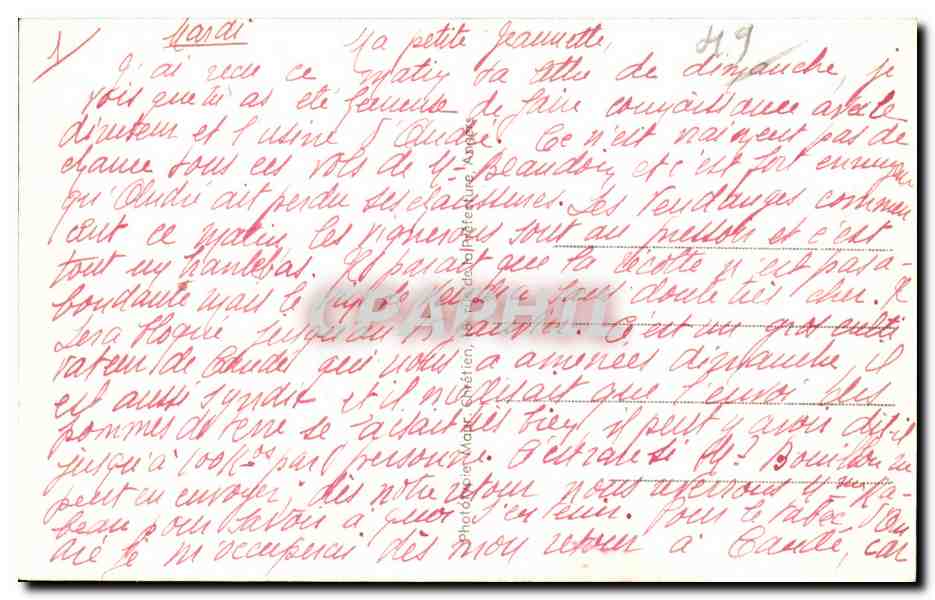 1/ Mardi Ma petite Jeannette, 49
J'ai reçu ce matin ta lettre de dimanche, je
vois que tu as été heureuse de faire connaissance avec le
directeur et l'usine d'André. Ce n'est vraiment pas de
chance tous ces vols de Mr Beaudoin et c'est fort ennuyeux
qu'André ait perdu ses chaussures. Les vendanges commen
cent ce matin, les vignerons sont au pressoir et c'est
tout un branlebas. Il parait que la récolte n'est pas a-
bondante mais le vin se vendra sans doute très cher. Il
sera bloqué jusqu'au C'est un gros culti
vateur de Candé qui nous a amenées dimanche il
est aussi syndic et il me disait que l'envoi des
pommes de terre se faisait très bien, il peut y avoir dit-il
jusqu'à 100 Kos par personne. C'est rare si Mr Bouillon ne
peut en envoyer; dès notre retour nous verrons Mr Ra-
beau pour savoir à quoi s'en tenir. Pour le tabac d'An
dré je m'occuperai dès mon retour à Candé, car
Phototypie Mapr. Chrétien, Rue de la Préfecture, Angers
CPARAMA